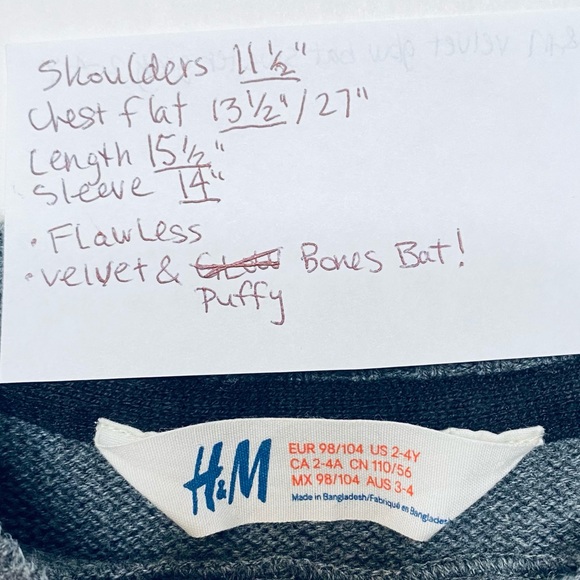 Shoulders 11 ½"
Chest flat 13 ½" / 27"
Length 15 ½"
Sleeve 14"
• Flawless
• Velvet & Bones Bat!
Puffy
H&M
EUR 98/104 US 2-4Y
CA 2-4A CN 110/56
MX 98/104 AUS 3-4
Made in Bangladesh/Fabriqué en Bangladesh